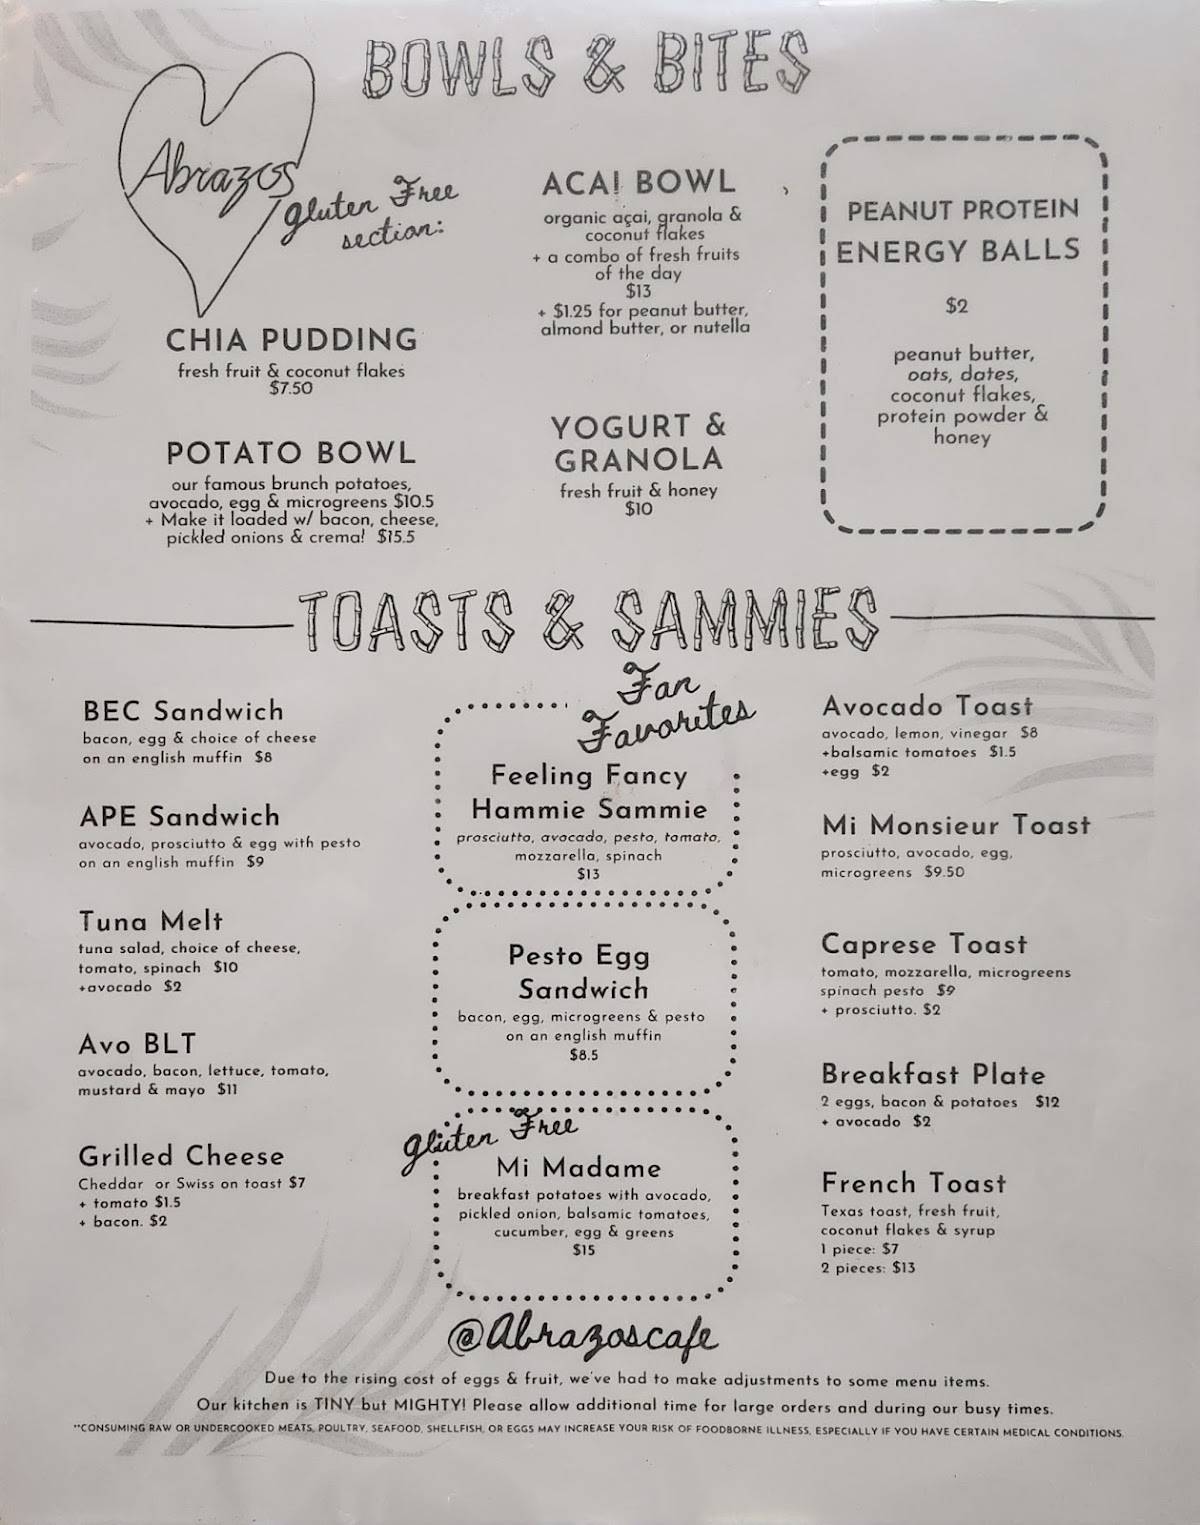 BOWLS & BITES
Abrazos
gluten Free
section:
CHIA PUDDING
fresh fruit & coconut flakes
$7.50
POTATO BOWL
our famous brunch potatoes,
avocado, egg & microgreens $10.5
+ Make it loaded w/ bacon, cheese,
pickled onions & crema! $15.5
ACAI BOWL
organic açai, granola &
coconut flakes
+ a combo of fresh fruits
of the day
$13
+ $1.25 for peanut butter,
almond butter, or nutella
YOGURT &
GRANOLA
fresh fruit & honey
$10
PEANUT PROTEIN
ENERGY BALLS
$2
peanut butter,
oats, dates,
coconut flakes,
protein powder &
honey
TOASTS & SAMMIES
BEC Sandwich
bacon, egg & choice of cheese
on an english muffin $8
APE Sandwich
avocado, prosciutto & egg with pesto
on an english muffin $9
Tuna Melt
tuna salad, choice of cheese,
tomato, spinach $10
+avocado $2
Avo BLT
avocado, bacon, lettuce, tomato,
mustard & mayo $11
Grilled Cheese
Cheddar or Swiss on toast $7
+ tomato $1.5
+ bacon. $2
Fan
Favorites
Feeling Fancy
Hammie Sammie
prosciutto, avocado, pesto, tomato,
mozzarella, spinach
$13
Pesto Egg
Sandwich
bacon, egg, microgreens & pesto
on an english muffin
$8.5
gluten Free
Mi Madame
breakfast potatoes with avocado,
pickled onion, balsamic tomatoes,
cucumber, egg & greens
$15
Avocado Toast
avocado, lemon, vinegar $8
+balsamic tomatoes $1.5
+egg $2
Mi Monsieur Toast
prosciutto, avocado, egg,
microgreens $9.50
Caprese Toast
tomato, mozzarella, microgreens
spinach pesto $9
+ prosciutto. $2
Breakfast Plate
2 eggs, bacon & potatoes $12
+ avocado $2
French Toast
Texas toast, fresh fruit,
coconut flakes & syrup
1 piece: $7
2 pieces: $13
@Abrazoscafe
Due to the rising cost of eggs & fruit, we've had to make adjustments to some menu items.
Our kitchen is TINY but MIGHTY! Please allow additional time for large orders and during our busy times.
**CONSUMING RAW OR UNDERCOOKED MEATS, POULTRY, SEAFOOD, SHELLFISH, OR EGGS MAY INCREASE YOUR RISK OF FOODBORNE ILLNESS, ESPECIALLY IF YOU HAVE CERTAIN MEDICAL CONDITIONS.